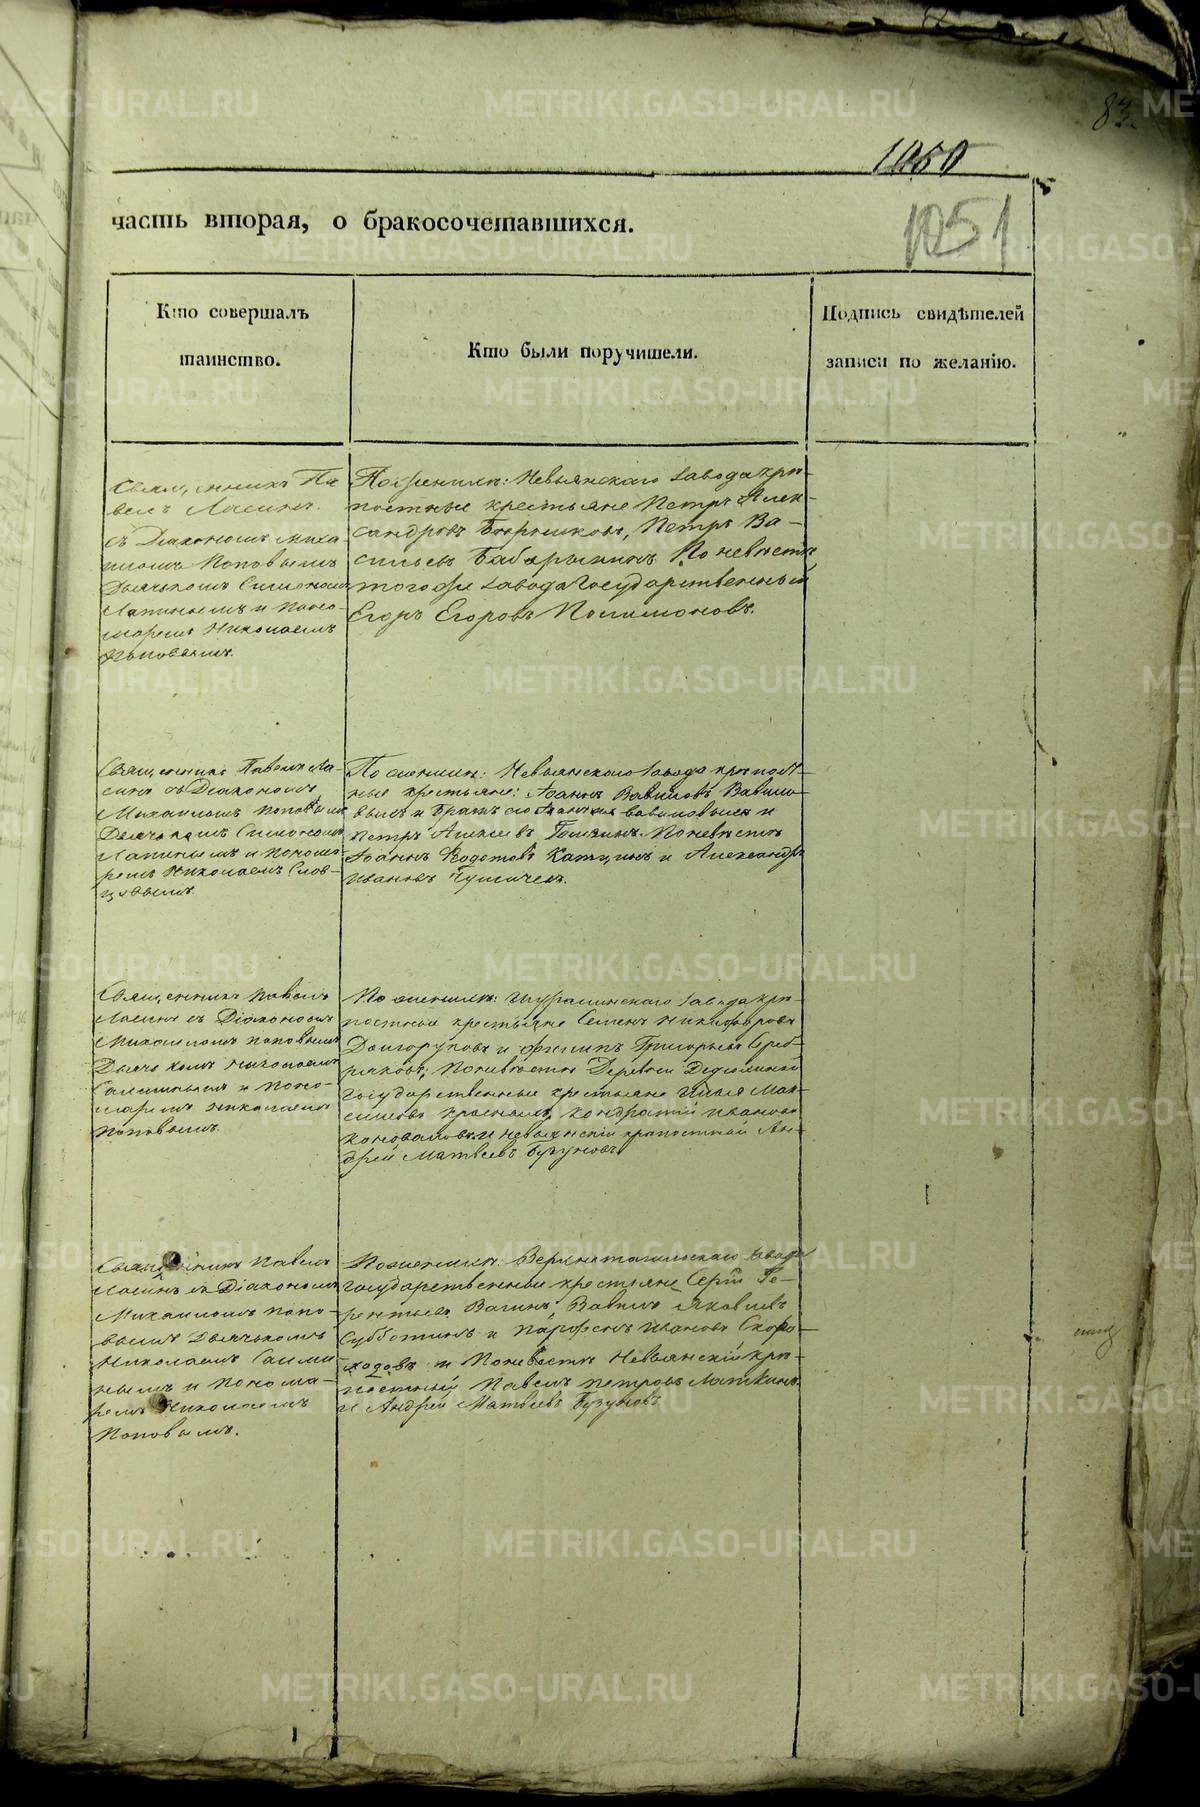 83.
1050
часть вторая, о бракосочетавшихся.
1051
Кто совершалъ
таинство.
Кто были поручители.
Подпись свидѣтелей
записи по желанію.
Священникъ Па
велъ Ласинъ
съ Діакономъ Миха
иломъ Поповымъ
Дьячькомъ Симеономъ
Лапинымъ и Поно-
маремъ Николаемъ
Поповымъ.
По женихѣ: Невьянскаго завода крѣ-
постные крестьяне Петръ Алек-
сандровъ Петръ Ва-
сильевъ Бабарыкинъ По невѣстѣ
того же завода Государственный
Егоръ Егоровъ
Священникъ Павелъ Ла-
синъ съ Діакономъ
Михаиломъ Поповымъ
Дьячькомъ Симеономъ
Лапинымъ и Понома-
ремъ Николаемъ Слов-
цовымъ.
По женихѣ: Невьянскаго завода крѣпост-
ные крестьяне: Іоаннъ Вавиловъ Вавило-
вымъ и братъ его Вавиловымъ и
Петръ Алексѣевъ По невѣстѣ
Іоаннъ Федотовъ и Александръ
Ивановъ
Священникъ Павелъ
Ласинъ съ Діакономъ
Михаиломъ Поповымъ
Дьячькомъ Николаемъ
и Поно-
маремъ Николаемъ
Поповымъ.
По женихѣ: Шуралинскаго завода крѣ-
постные крестьяне Семенъ Никифоровъ
Долгоруковъ и Филипъ Григорьевъ Сереб-
ряковъ; По невѣстѣ Деревни
государственные крестьяне Илья Мак-
симовъ Кондратій Ивановъ
Коноваловъ и Невьянскій крѣпостной Ан-
дрей Матвѣевъ Бузуновъ
Священникъ Павелъ
Ласинъ съ Діакономъ
Михаиломъ Попо-
вымъ Дьячькомъ
Николаемъ
и Понома-
ремъ Николаемъ
Поповымъ.
По женихѣ: Верхнетагильскаго завода
государственные крестьяне Сергѣй Те-
рентьевъ Вагинъ, Вавилъ Яковлевъ
Субботинъ и Парфенъ Ивановъ Скоро-
ходовъ и По невѣстѣ Невьянскій крѣ-
постный Павелъ Петровъ Латкинъ
и Андрей Матвѣевъ Бузуновъ
METRIKI.GASO-URAL.RU